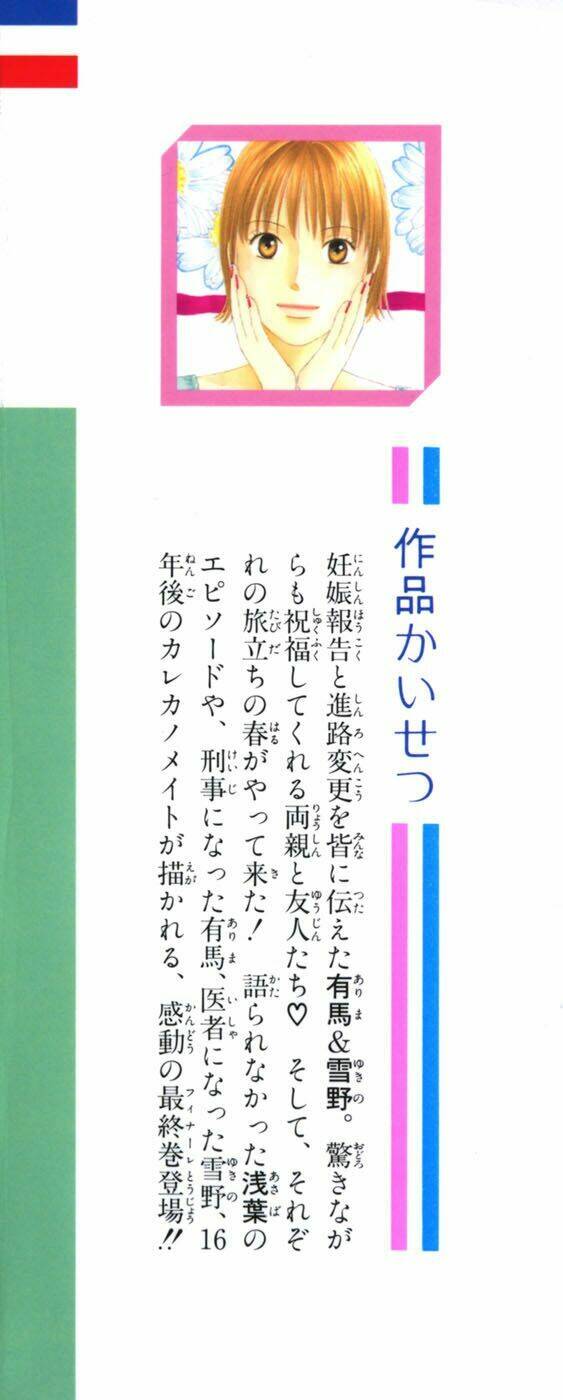 作品かいせつ
妊娠報告と進路変更を皆に伝えた有馬&雪野。驚きなが
らも祝福してくれる両親と友人たち♡ そして、それぞ
れの旅立ちの春がやって来た! 語られなかった浅葉の
エピソードや、刑事になった有馬、医者になった雪野、16
年後のカレカノメイトが描かれる、感動の最終巻登場!!